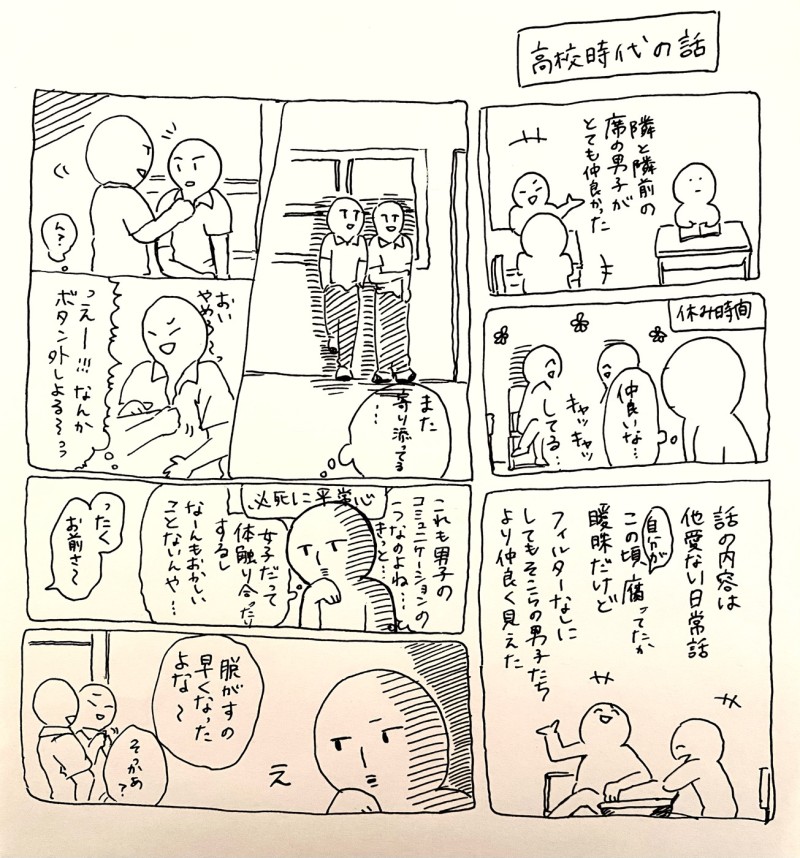 高校時代の話
隣と隣前の
席の男子が
とても仲良かった
休み時間
仲良いな…
キャッキャッ
してる…
話の内容は
他愛ない日常話
自分が
この頃、腐ってたか
曖昧だけど
フィルターなしに
してもそこらの男子たち
より仲良く見えた
また
寄り添ってる
…
ん?
おい
やめろ〜っ
っえー!!!なんか
ボタン外しよる〜っっ
必死に平常心
これも男子の
コミュニケーションの
1つなのよね…
きっと…
女子だって
体触り合ったり
するし
なーんもおかしい
ことないんや…
ったく
お前さ〜
脱がすの
早くなった
よな〜
そっかぁ?
え